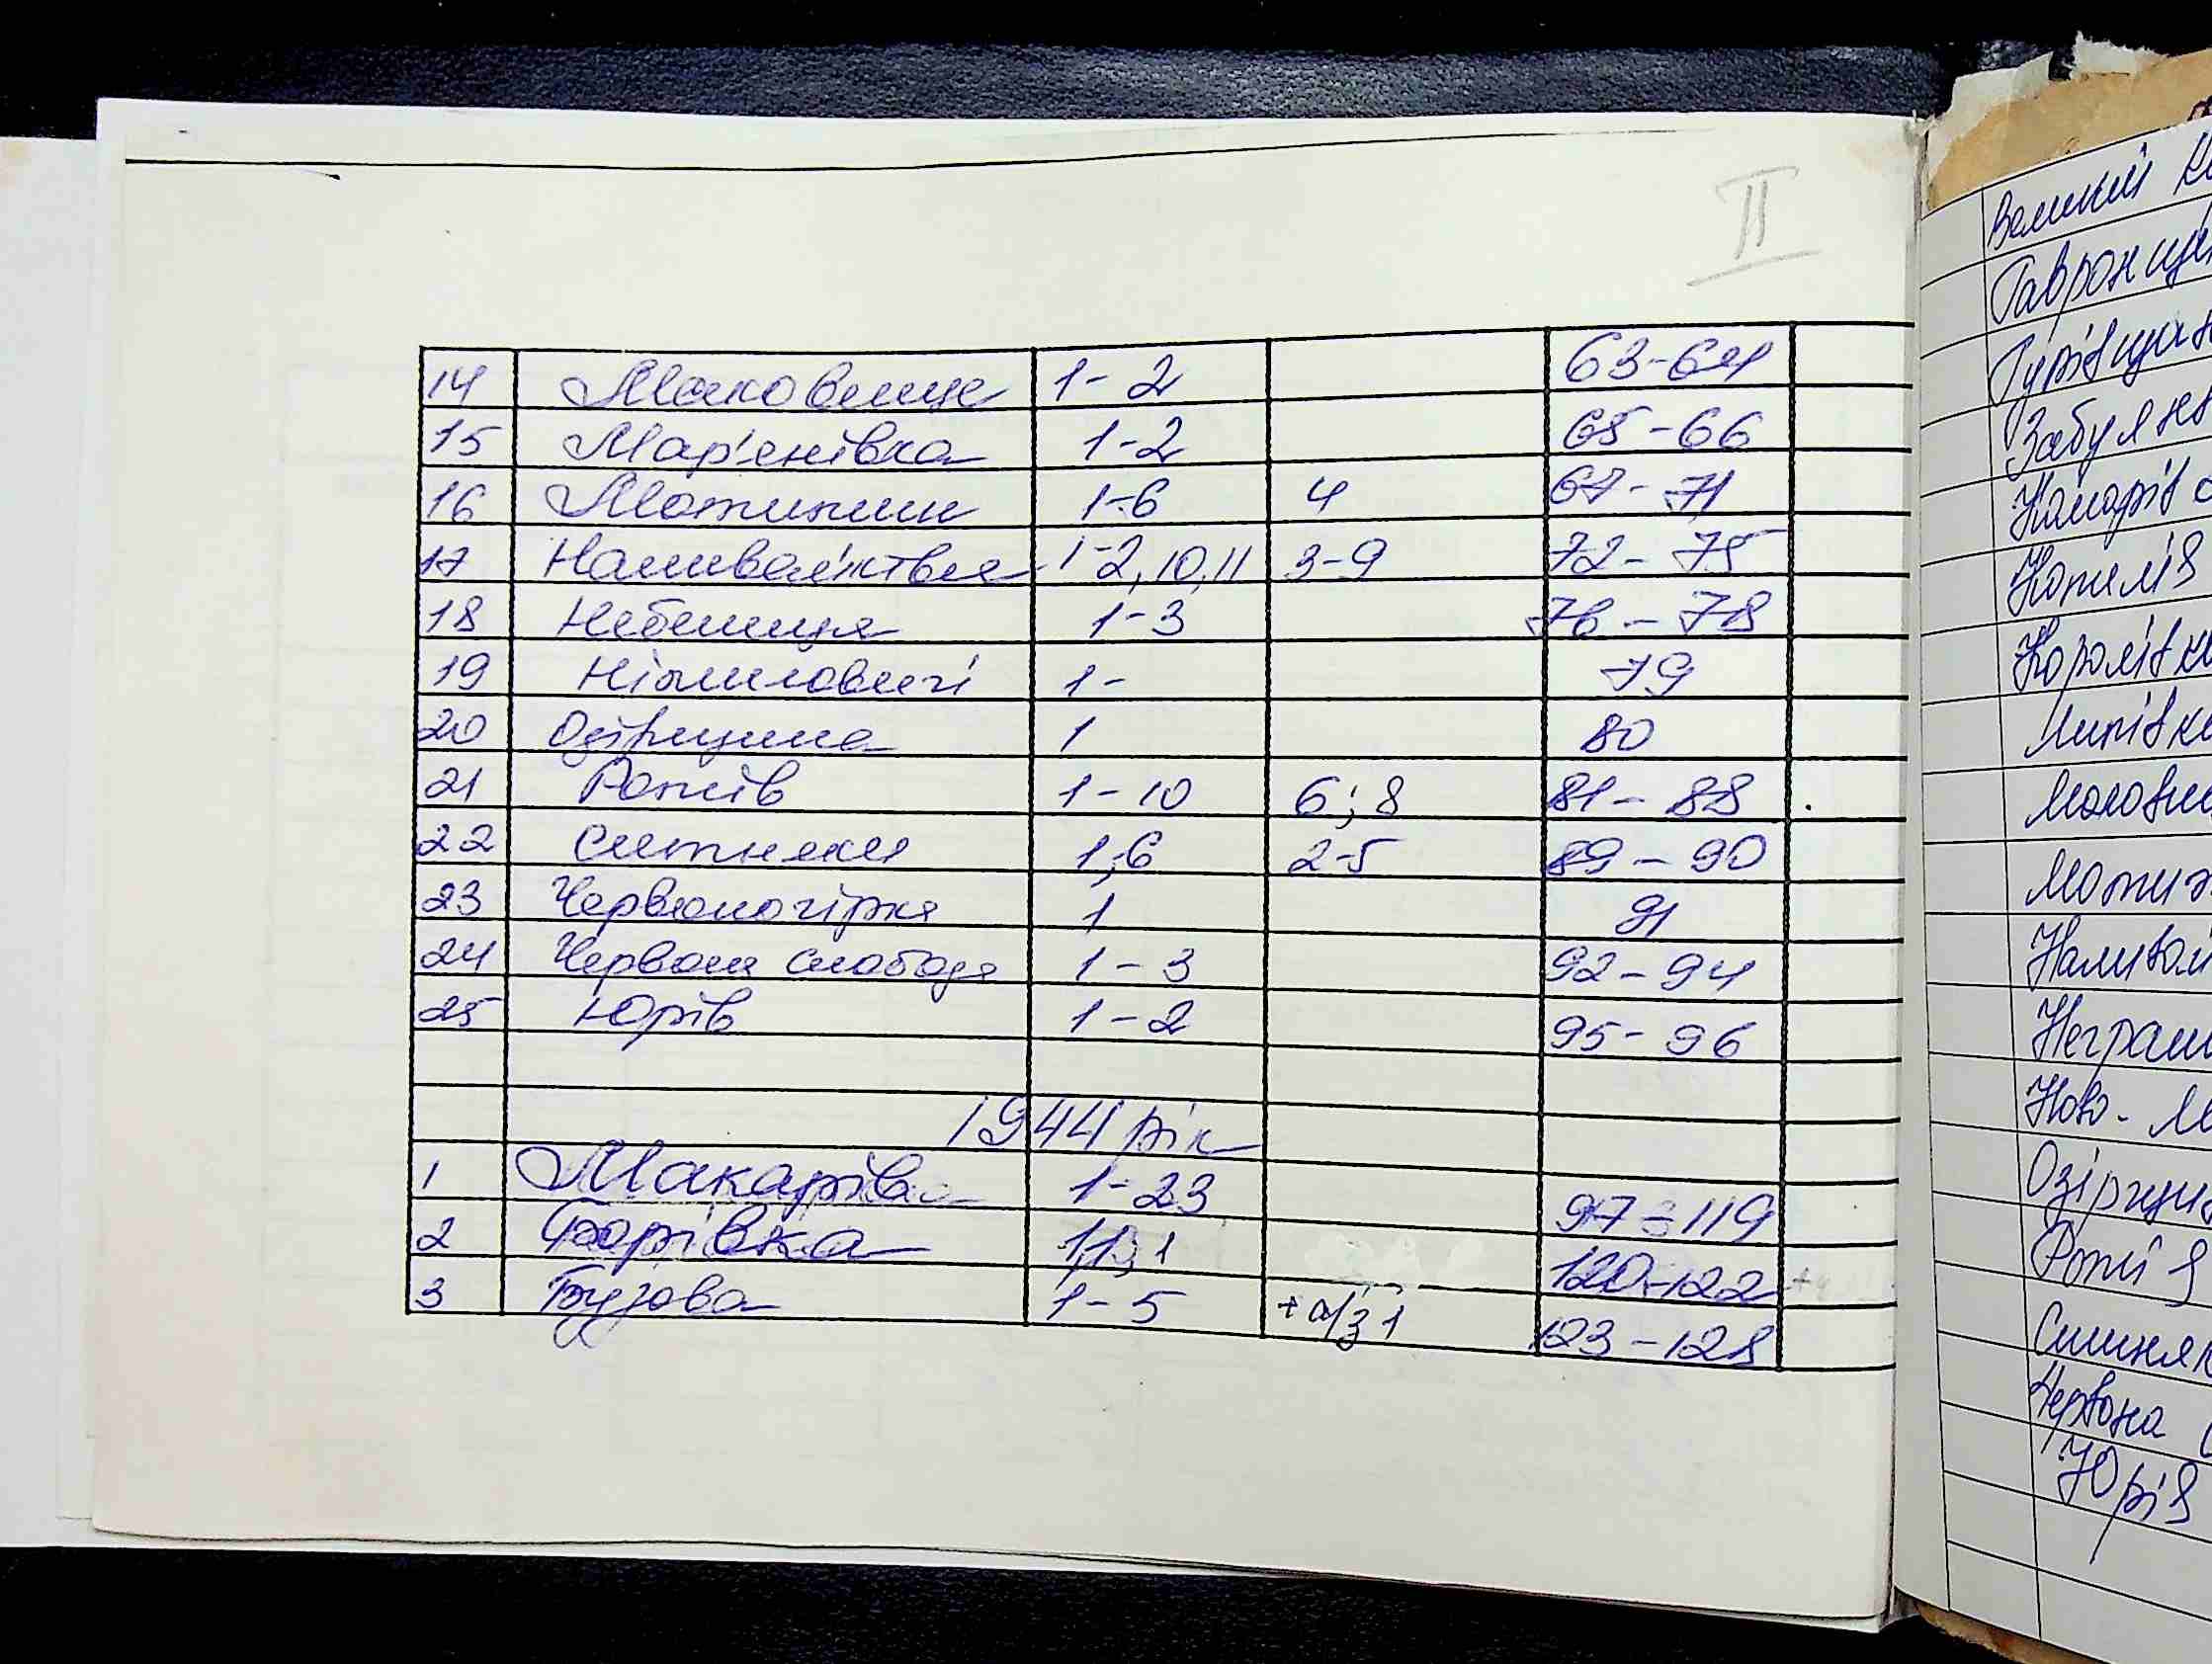 II
14 Маковище 1-2 63-64
15 Мар'янівка 1-2 65-66
16 Мотижин 1-6 4 67-71
17 Наливайківка 1-2, 10, 11 3-9 72-75
18 Небелиця 1-3 76-78
19 Ніжиловичі 1- 79
20 Озірщина 1 80
21 Рожів 1-10 6; 8 81-88
22 Ситняки 1,6 2-5 89-90
23 Червоногірка 1 91
24 Червона слобода 1-3 92-94
25 Юрів 1-2 95-96
1944 рік
1 Макарів 1-23 97-119
2 Борівка 120-122
3 Бузова 1-5 + а/з 1 123-128
Великий К
Гавронщи
Гурівщин
Забуян
Комарів
Копилів
Королівк
Липівк
Макови
Мотиж
Наливай
Неграш
Ново-М
Озірщин
Рожів
Ситняк
Червона
Юрів